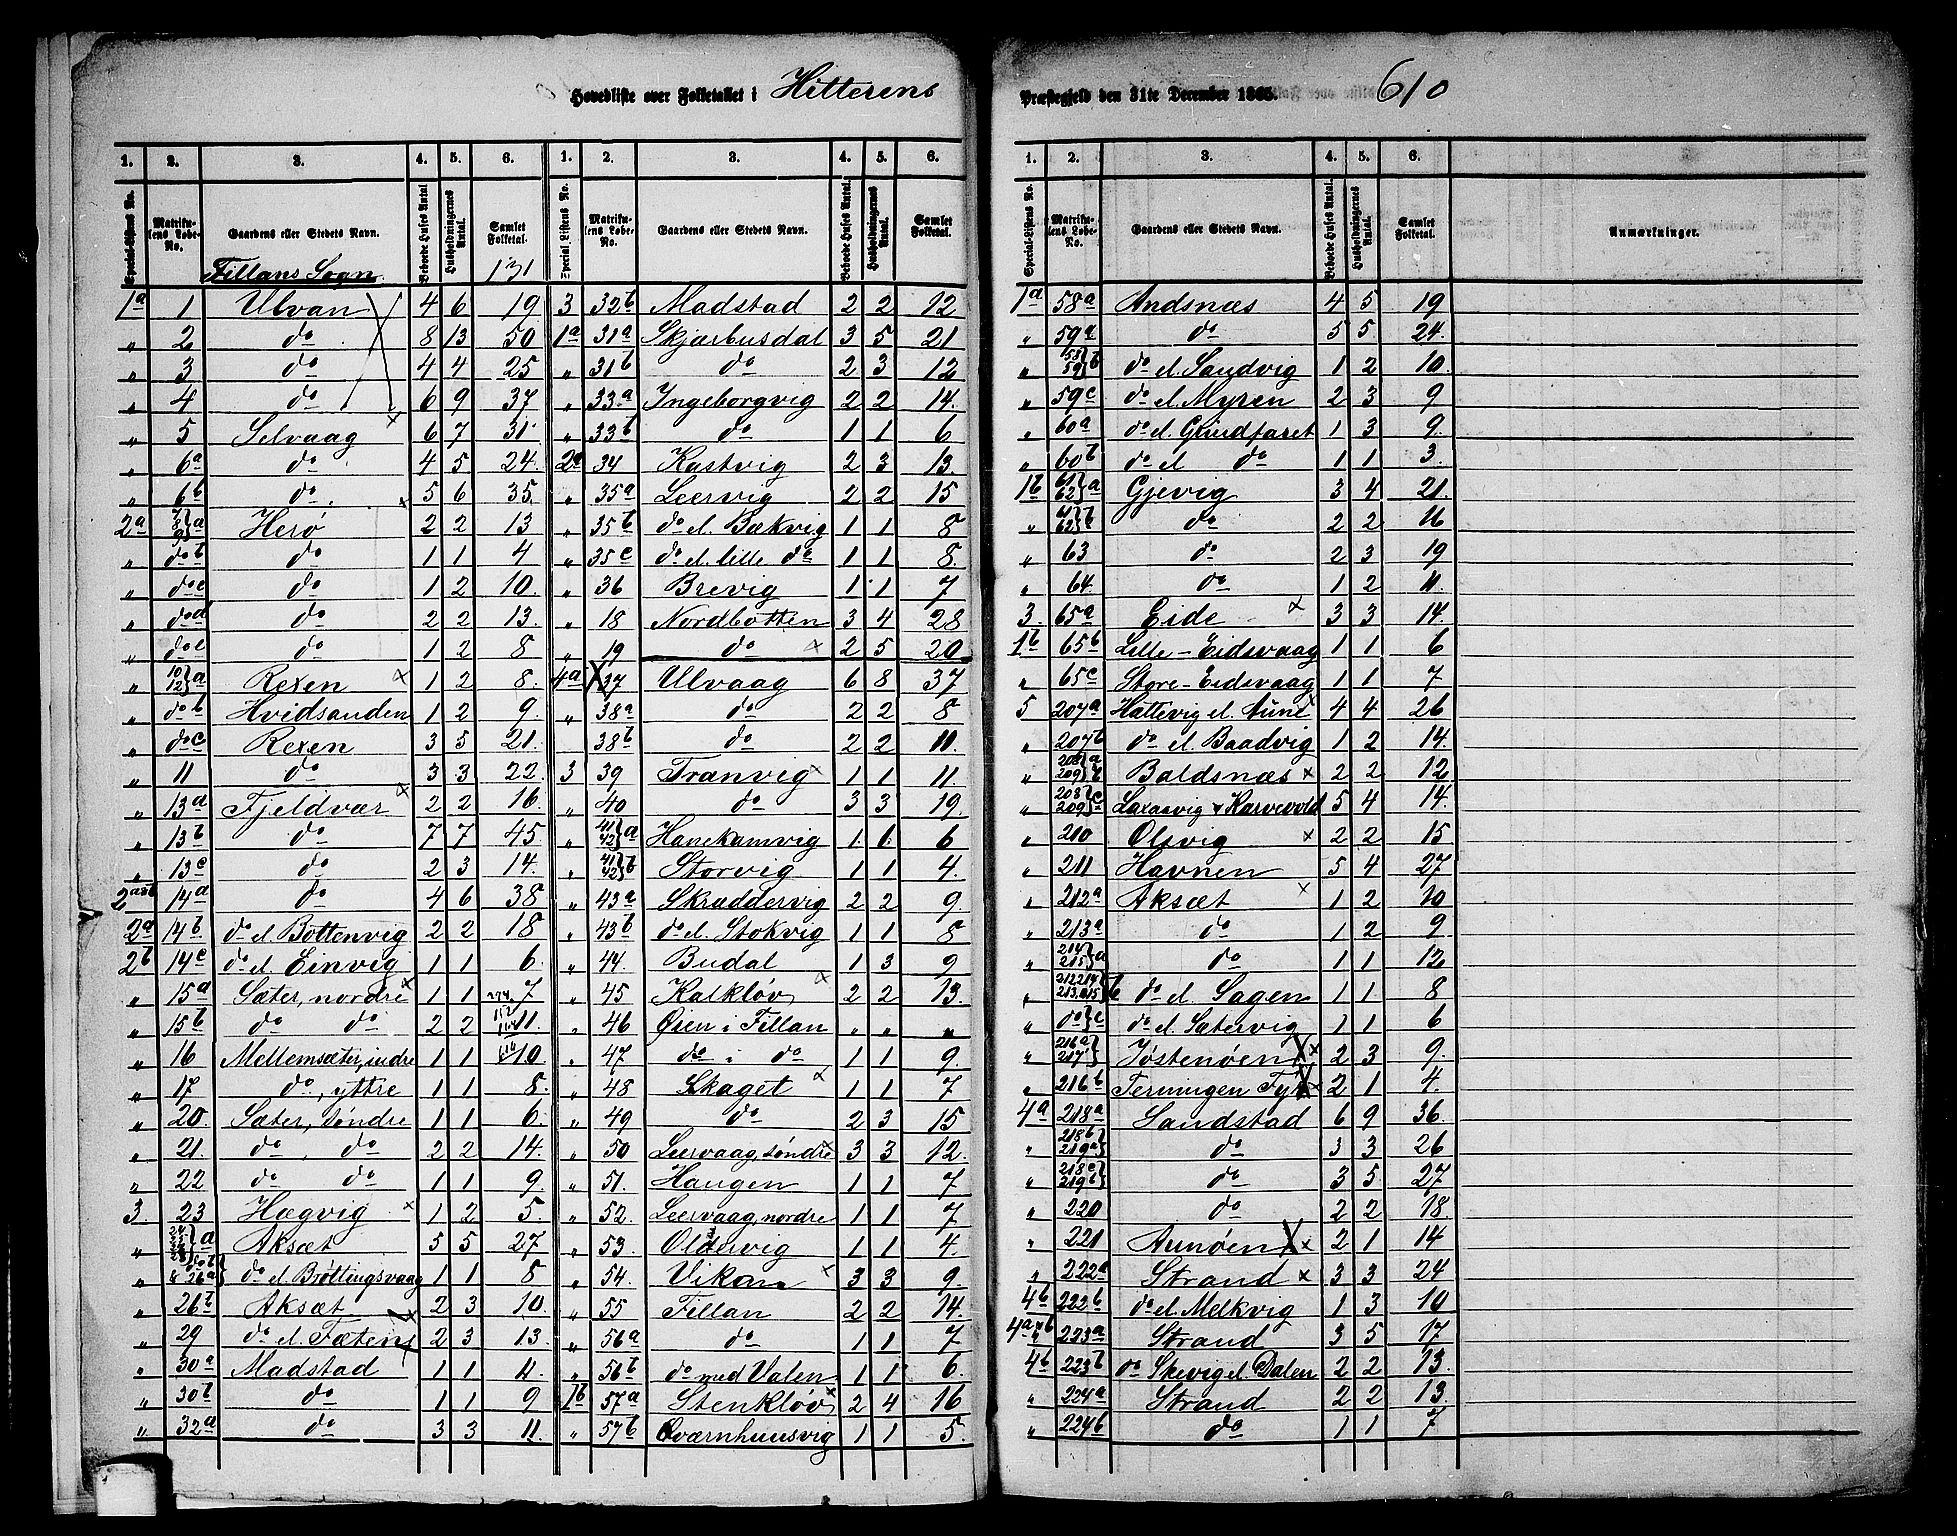 Hovedliste over Folketallet i Hitterens Præstegjeld den 31te December 1865. 610
1. 2. 3. 4. 5. 6. 1. 2. 3. 4. 5. 6. 1. 2. 3. 4. 5. 6.
Special-Listens No. Matrikulens Løbe-No. Gaardens eller Stedets Navn. Beboede Huses Antal. Husholdningernes Antal. Samlet Folketal. Special-Listens No. Matrikulens Løbe-No. Gaardens eller Stedets Navn. Beboede Huses Antal. Husholdningernes Antal. Samlet Folketal. Special-Listens No. Matrikulens Løbe-No. Gaardens eller Stedets Navn. Beboede Huses Antal. Husholdningernes Antal. Samlet Folketal. Anmærkninger.
Fillans Sogn. 131
1a 1 Ulvan 4 6 19
„ 2 do 8 13 50
„ 3 do 4 4 25
„ 4 do 6 9 37
„ 5 Selvaag 6 7 31
„ 6a do 4 5 24
„ 6b do 5 6 35
2a 7 8 9}a Herö 2 2 13
„ do b do 1 1 4
„ do c do 1 2 10
„ do d do 2 2 13
„ do e do 1 2 8
„ 10 12}a Rexen 1 2 8
„ do b Hvidsanden 1 2 9
„ do c Rexen 3 5 21
„ 11 do 3 3 22
„ 13a Fjeldvær 2 2 16
„ 13b do 7 7 45
„ 13c do 2 3 14
2a&b 14a do 4 6 38
2a 14b do el. Bottenvig 2 2 18
2b 14c do el. Einvig 1 1 6
„ 15a Sæter, nordre 1 1 7
„ 15b do do 2 2 11
„ 16 Mellemsæter, indre 1 1 10
„ 17 do, yttre 1 1 8
„ 20 Sæter, söndre 1 1 6
„ 21 do, do 2 2 14
„ 22 do do 1 1 9
3 23 Hægvig 1 2 5
„ a Aksæt 5 5 27
„ do b & 26a} do el. Bröttingsvaag 1 1 8
„ 26b Aksæt 2 3 10
„ 29 do el. Fætens 2 3 13
„ 30a Madstad 1 1 4
„ 30b do 1 1 9
„ 32a do 3 3 11
3 32b Madstad 2 2 12
1a 31a Skjærbusdal 3 5 21
„ 31b do 2 3 12
„ 33a Ingeborgvig 2 2 14
„ 33b do 1 1 6
2a 34 Kastvig 2 3 13
„ 35a Leervig 2 2 15
„ 35b do el. Bækvig 1 1 8
„ 35c do el. lille do 1 1 8
„ 36 Brevig 1 1 7
„ 18 Nordbotten 3 4 28
„ 19 do 2 5 20
4a 37 Ulvaag 6 8 37
„ 38a do 2 2 8
38b do 2 2 11
3 39 Tranvig 1 1 11
„ 40 do 3 3 19
„ 41 42}a Hanekamvig 1 1 6
„ 41 42}b Storvig 1 1 4
„ 43a Skræddervig 2 2 9
„ 43b do el. Stokvig 1 1 8
„ 44 Budal 1 3 9
„ 45 Kalklöv 2 2 13
„ 46 Øien i Fillan „ „ „
„ 47 do i do 1 1 9
„ 48 Skaget 1 1 7
„ 49 do 2 3 15
„ 50 Leervaag, söndre 3 3 12
„ 51 Haugen 1 1 7
„ 52 Leervaag, nordre 1 1 7
„ 53 Oldervig 1 1 4
„ 54 Vikan 3 3 9
„ 55 Fillan 2 2 14
„ 56a do 1 1 7
„ 56b do med Valen 1 1 6
1b 57a Stenklöv 2 4 16
„ 57b Qværnhuusvig 1 1 5
1a 58a Andsnæs 4 5 19
„ 59a do 5 5 24
„ 58 59}b do el. Sandvig 1 2 10
„ 59c do el. Myren 2 3 9
„ 60a do el. Grindfaret 1 3 9
„ 60b do el do 1 1 3
1b 61 62}a Gjevig 3 4 21
„ 61 62}b do 2 2 16
„ 63 do 2 3 19
„ 64 do 1 2 11
3 65a Eide 3 3 14
1b 65b Lille-Eidsvaag 1 1 6
„ 65c Store-Eidsvaag 1 1 7
5 207a Hattevig el. Aune 4 4 26
„ 207b do el. Baadvig 1 2 14
„ 208a 209b Baldsnæs 2 2 12
„ 208 209}c Laxaavig & Karvevold 5 4 14
„ 210 Olsvig 2 2 15
„ 211 Havnen 5 4 27
„ 212a Aksæt 1 2 10
„ 213a do 1 2 9
„ 214 215}a do 1 1 12
„ 212 214 213 215}b do el. Sagen 1 1 8
„ do}c do el. Sætervig 1 1 6
„ 216a 217} Jöstenöen 2 3 9
„ 216b Terningen Fyr 2 1 4
4a 218a Sandstad 6 9 36
„ 218b 219a} do 3 3 26
„ 218c 219b} do 3 5 27
„ 220 do 2 2 18
„ 221 Aunöen 2 1 14
„ 222a Strand 3 3 24
4b 222b do el. Melkvig 1 3 10
4a&b 223a Strand 3 5 17
4b 223b do Skevig el. Dalen 2 2 13
„ 224a Strand 2 2 13
„ 224b do 1 1 7